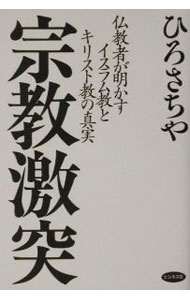 ひろさちや
仏教者が明かす
イスラム教と
キリスト教の真実
宗教激突
ビジネス社